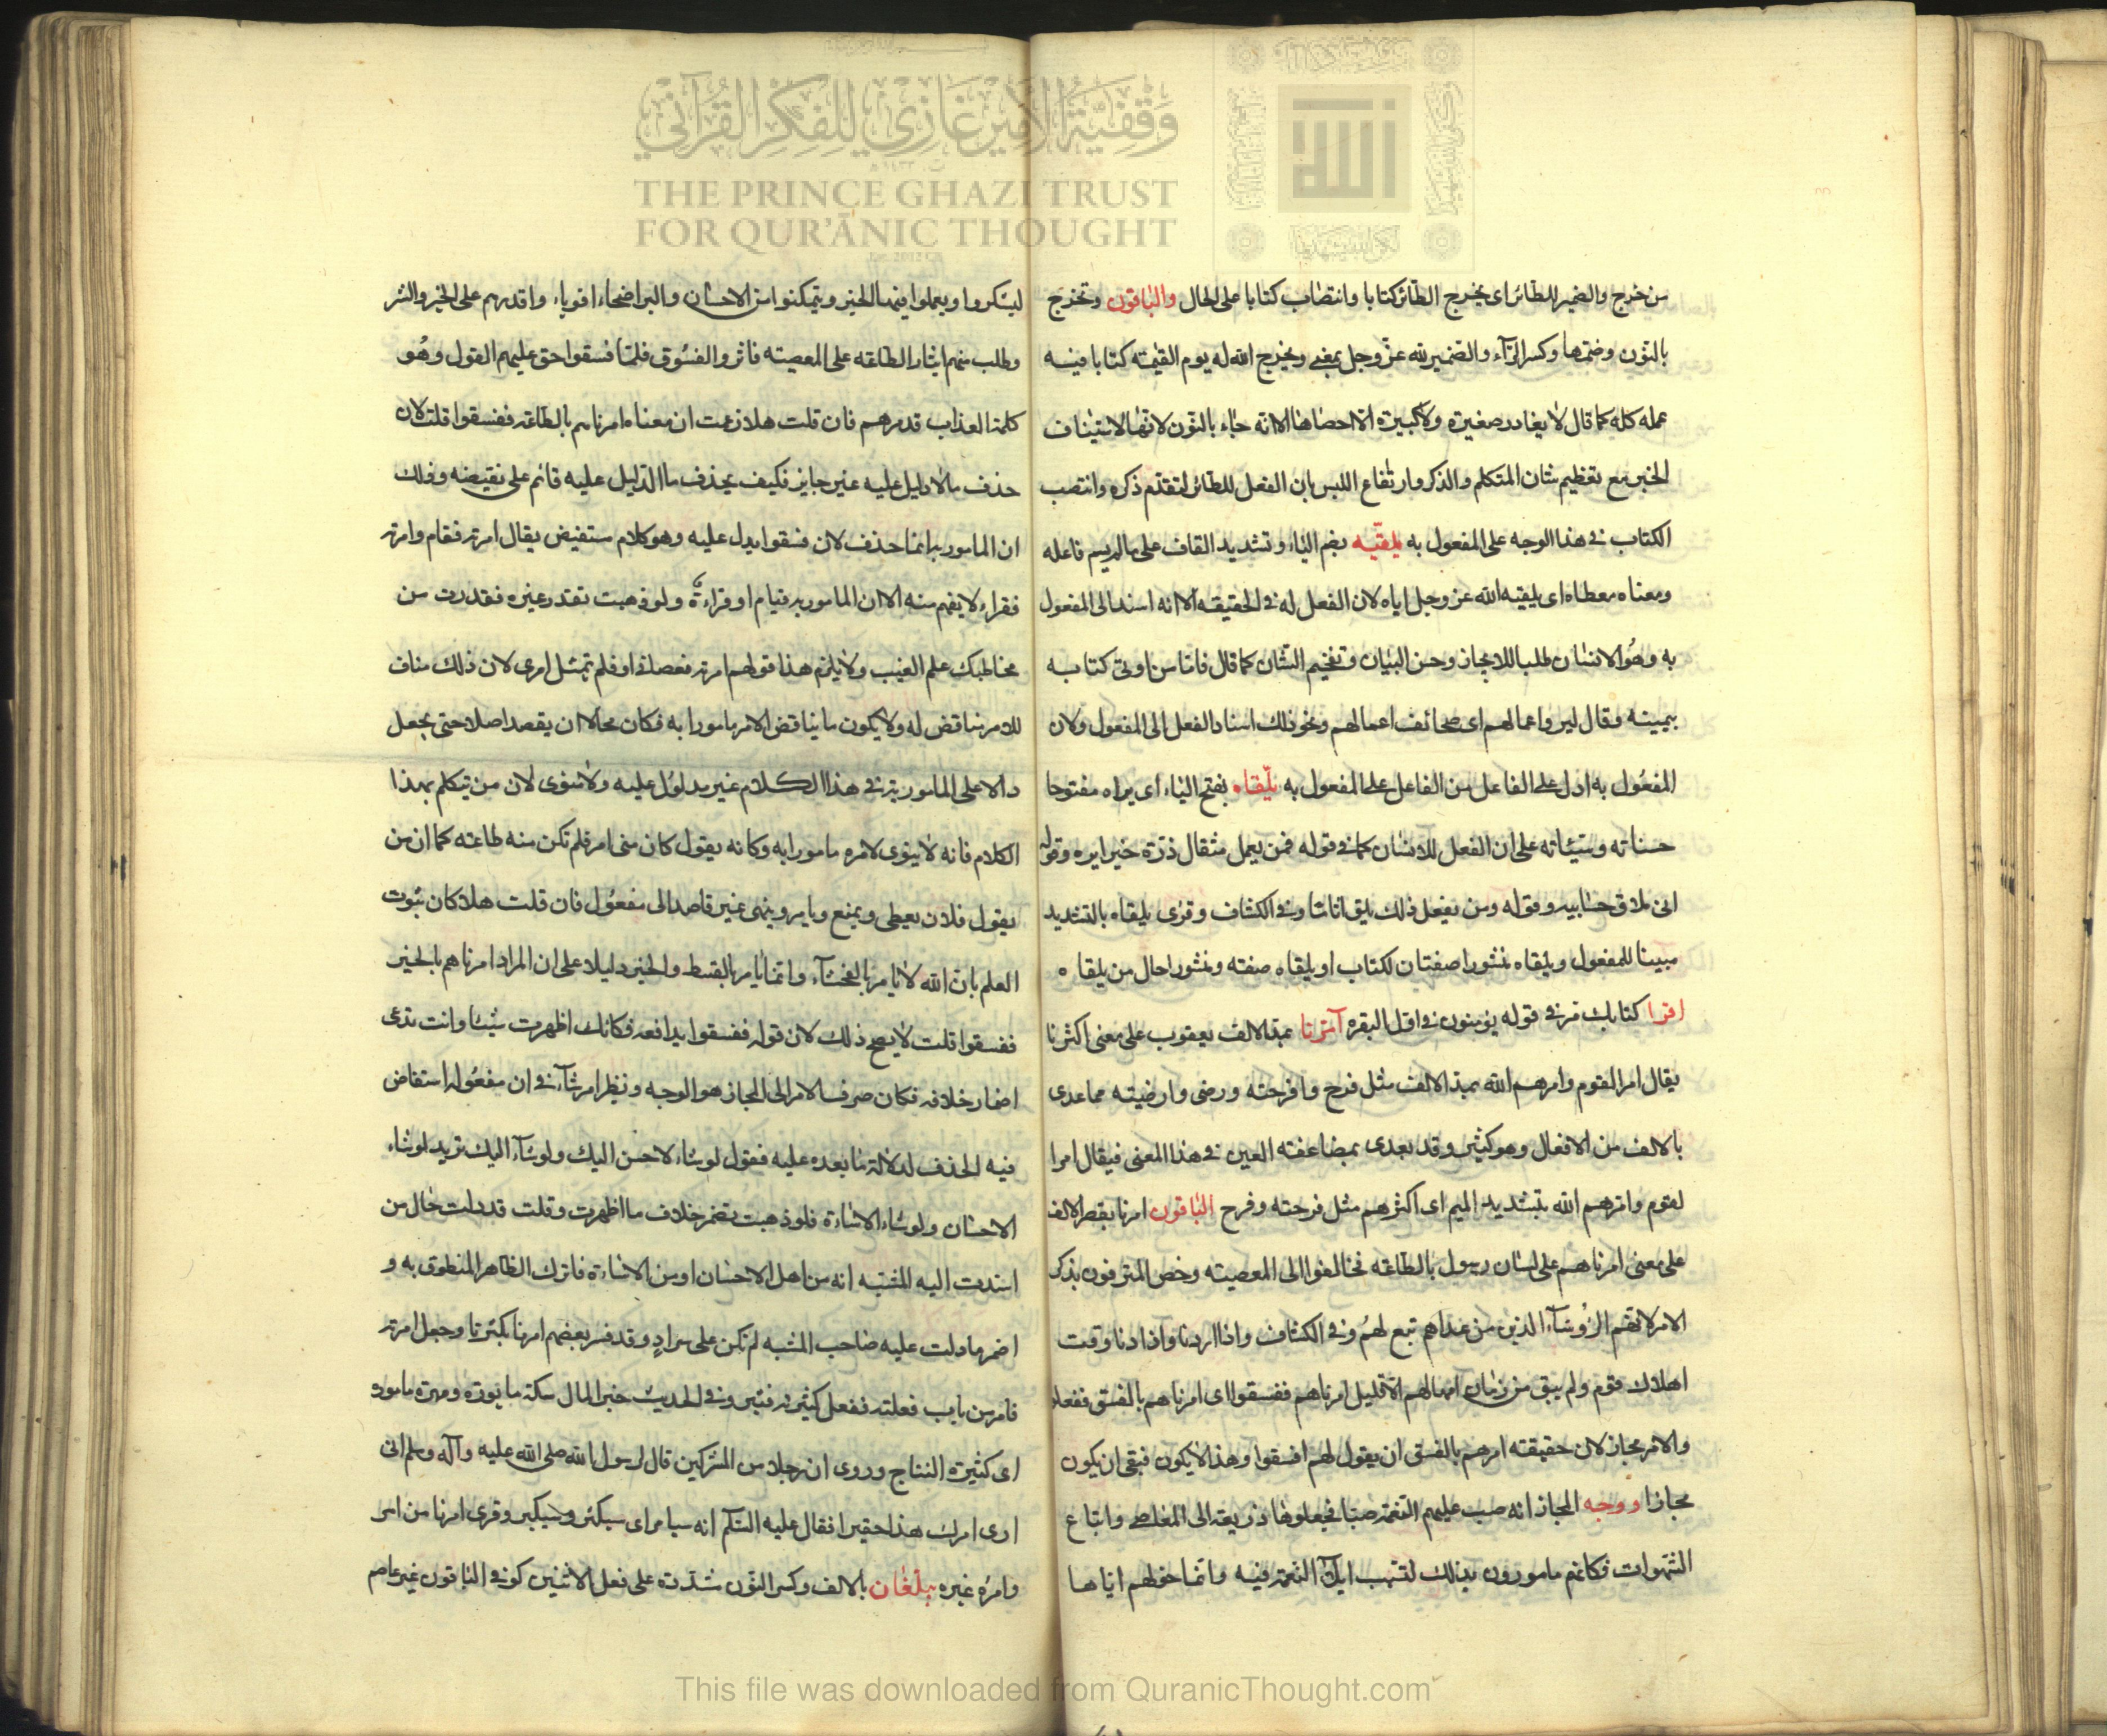 وقفية الأمير غازي للفكر القرآني
THE PRINCE GHAZI TRUST
FOR QUR'ĀNIC THOUGHT
الله
من خرج والضمير للطائر اى يخرج الطائر كتابا وانتصاب كتابا على الحال والباقون ونخرج
بالنون وضمها وكسر الراء والضمير لله عز وجل بمعنى ويخرج الله له يوم القيمة كتابا فيه
عمله كله كما قال لا يغادر صغيرة ولا كبيرة الا احصاها الا انه جاء بالنون لانها لاستيناف
الخبر مع تعظيم شان المتكلم والذكر وارتفاع اللبس بان الفعل للطائر لتقدم ذكره وانتصب
الكتاب فى هذا الوجه على المفعول به يلقيه بضم الياء وتشديد القاف على ما لم يسم فاعله
ومعناه معطاه اى يلقيه الله عز وجل اياه لان الفعل له فى الحقيقة الا انه اسند الى المفعول
به وهو الانسان طلبا للايجاز وحسن البيان وتفخيم الشان كما قال فاما من اوتى كتابه
بيمينه وقال ليروا اعمالهم اى صحائف اعمالهم ونحو ذلك اسناد الفعل الى المفعول ولان
المفعول به ادل على الفاعل من الفاعل على المفعول به يلقاه بفتح الياء اى يراه مفتوحا
حسناته وسيئاته على ان الفعل للانسان كما فى قوله فمن يعمل مثقال ذرة خيرا يره وقوله
انى ملاق حسابيه وقوله ومن يفعل ذلك يلق اثاما وفى الكشاف وقرئ يلقاه بالتشديد
مبينا للمفعول ويلقاه منشورا صفتان لكتاب او يلقاه صفته ومنشورا حال من يلقاه
اقرا كتابك مر فى قوله يؤمنون فى اول البقره آمرنا بمد الالف يعقوب على معنى اكثرنا
يقال امر القوم وامرهم الله بمد الالف مثل فرح وافرحته ورضى وارضيته مما عدى
بالالف من الافعال وهو كثير وقد يعدى بمضاعفة العين فى هذا المعنى فيقال امرا
لقوم وامرهم الله بتشديد الميم اى اكثرهم مثل فرحته وفرح الباقون امرنا بقصر الالف
على معنى امرناهم على لسان رسول بالطاعة فخالفوا الى المعصية وخص المترفون بذكر
الامر لانهم الرؤساء الذين من عداهم تبع لهم وفى الكشاف واذا اردنا واذا دنا وقت
اهلاك قوم ولم يبق من زمان امهالهم الا قليل امرناهم ففسقوا اى امرناهم بالفسق ففعلوا
والامر مجاز لان حقيقته امرهم بالفسق ان يقول لهم افسقوا وهذا لا يكون فبقى ان يكون
مجازا ووجه المجاز انه صب عليهم النعمة صبا فجعلوها ذريعة الى المعاصى واتباع
الشهوات فكانهم مامورون بذلك لتسبب ايلاء النعمة فيه وانما خولهم اياها
ليشكروا ويعملوا فيها الخير ويتمكنوا من الاحسان والبر اصحاء اقوياء واقدرهم على الخير والشر
وطلب منهم ايثار الطاعة على المعصية فاثروا الفسوق فلما فسقوا حق عليهم القول وهو
كلمة العذاب فدمرهم فان قلت هلا زعمت ان معناه امرناهم بالطاعة ففسقوا قلت لان
حذف ما لا دليل عليه غير جايز فكيف يحذف ما الدليل عليه قائم على نقيضه وذلك
ان المامور به انما حذف لان فسقوا يدل عليه وهو كلام مستفيض يقال امرته فقام وامرته
فقراء لا يفهم منه الا ان المامور به قيام او قراءة ولو ذهبت تقدر غيره فقد رمت من
مخاطبك علم الغيب ولا يلزم هذا قولهم امرته فعصانى او فلم يمتثل امرى لان ذلك مناف
للامر مناقض له ولا يكون ما يناقض الامر مامورا به فكان محالا ان يقصد اصلا حتى يجعل
دالا على المامور به فى هذا الكلام غير مدلول عليه ولا منوى لان من يتكلم بهذا
الكلام فانه لا ينوى لامره مامورا به وكانه يقول كان منى امر فلم تكن منه طاعة كما ان من
يقول فلان يعطى ويمنع ويامر وينهى غير قاصد الى مفعول فان قلت هلا كان ثبوت
العلم بان الله لا يامر بالفحشاء وانما يامر بالقسط والخير دليلا على ان المراد امرناهم بالخير
ففسقوا قلت لا يصح ذلك لان قوله ففسقوا يدافعه فكانك اظهرت شيئا وانت تدعى
اضمار خلافه فكان صرف الامر الى المجاز هو الوجه ونظير امر شاء فى ان مفعوله استفاض
فيه الحذف لدلالة ما بعده عليه فقول لو شاء لاحسن اليك ولو شاء اليك تريد لو شاء
الاحسان ولو شاء الاساءة فلو ذهبت تضمر خلاف ما اظهرت وقلت قد دلت حال من
اسندت اليه المشية انه من اهل الاحسان او من الاساءة فاترك الظاهر المنطوق به و
اضمر ما دلت عليه صاحب المشيه لم تكن على سداد وقد فسر بعضهم امرنا بكثرنا وجعل امرته
فامر من باب فعلته ففعل كثيرته فثبر وفى الحديث خير المال سكة مابورة ومهرة مامورة
اى كثيرة النتاج وروى ان رجلا من المشركين قال لرسول الله صلى الله عليه وآله وسلم انى
ارى امرك هذا حقيرا فقال عليه السلام انه سيامر اى سيكثر وسيكبر وقرى امرنا من امر
وامره غيره يبلغان بالالف وكسر النون شددة على فعل الاثنين كوفى الباقون غير عاصم
This file was downloaded from QuranicThought.com